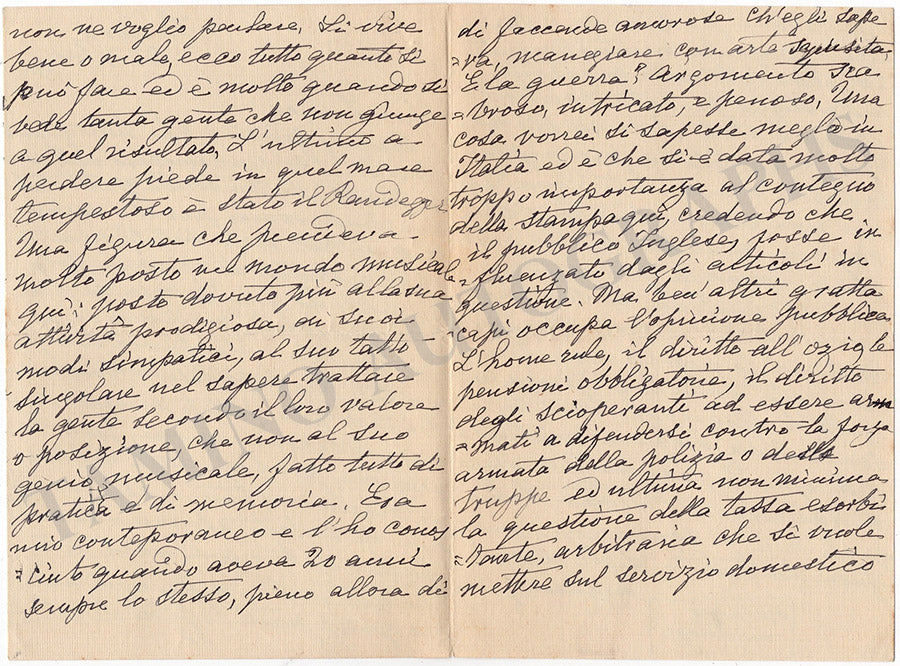 non ne voglio parlare. Si vive
bene o male, ecco tutto quanto si
può fare ed è molto quando si
vede tanta gente che non giunge
a quel risultato. L'ultimo a
perdere piede in quel mare
tempestoso è stato il Randegger
Una figura che prendeva
molto posto nel mondo musicale
quì; posto dovuto più alla sua
attività prodigiosa, ai suoi
modi simpatici, al suo tatto
singolare nel sapere trattare
la gente secondo il loro valore
o posizione, che non al suo
genio musicale, fatto tutto di
pratica e di memoria. Era
mio conteporaneo e l'ho conos
=ciuto quando aveva 20 anni
sempre lo stesso, pieno allora di
di faccende amorose ch'egli sape
=va, maneggiare con arte squisita
E la guerra? Argomento sca
=broso, intricato, e penoso. Una
cosa vorrei si sapesse meglio in
Italia ed è che si è data molto
troppo importanza al contegno
della stampa quì, credendo che
il pubblico Inglese, fosse in
=fluenzato dagli articoli in
questione. Ma ben'altri gratta
capi occupa l'opinione pubblica
L'home rule, il diritto all'ozio, le
pensioni obbligatorie, il diritto
degli scioperanti ad essere arm
=mati a difendersi contro la forza
armata della polizia o delle
truppe ed ultima non minima
la questione della tassa esorbi
=tante, arbitraria che si vuole
mettere sul servizio domestico
TAMINO AUTOGRAPHS